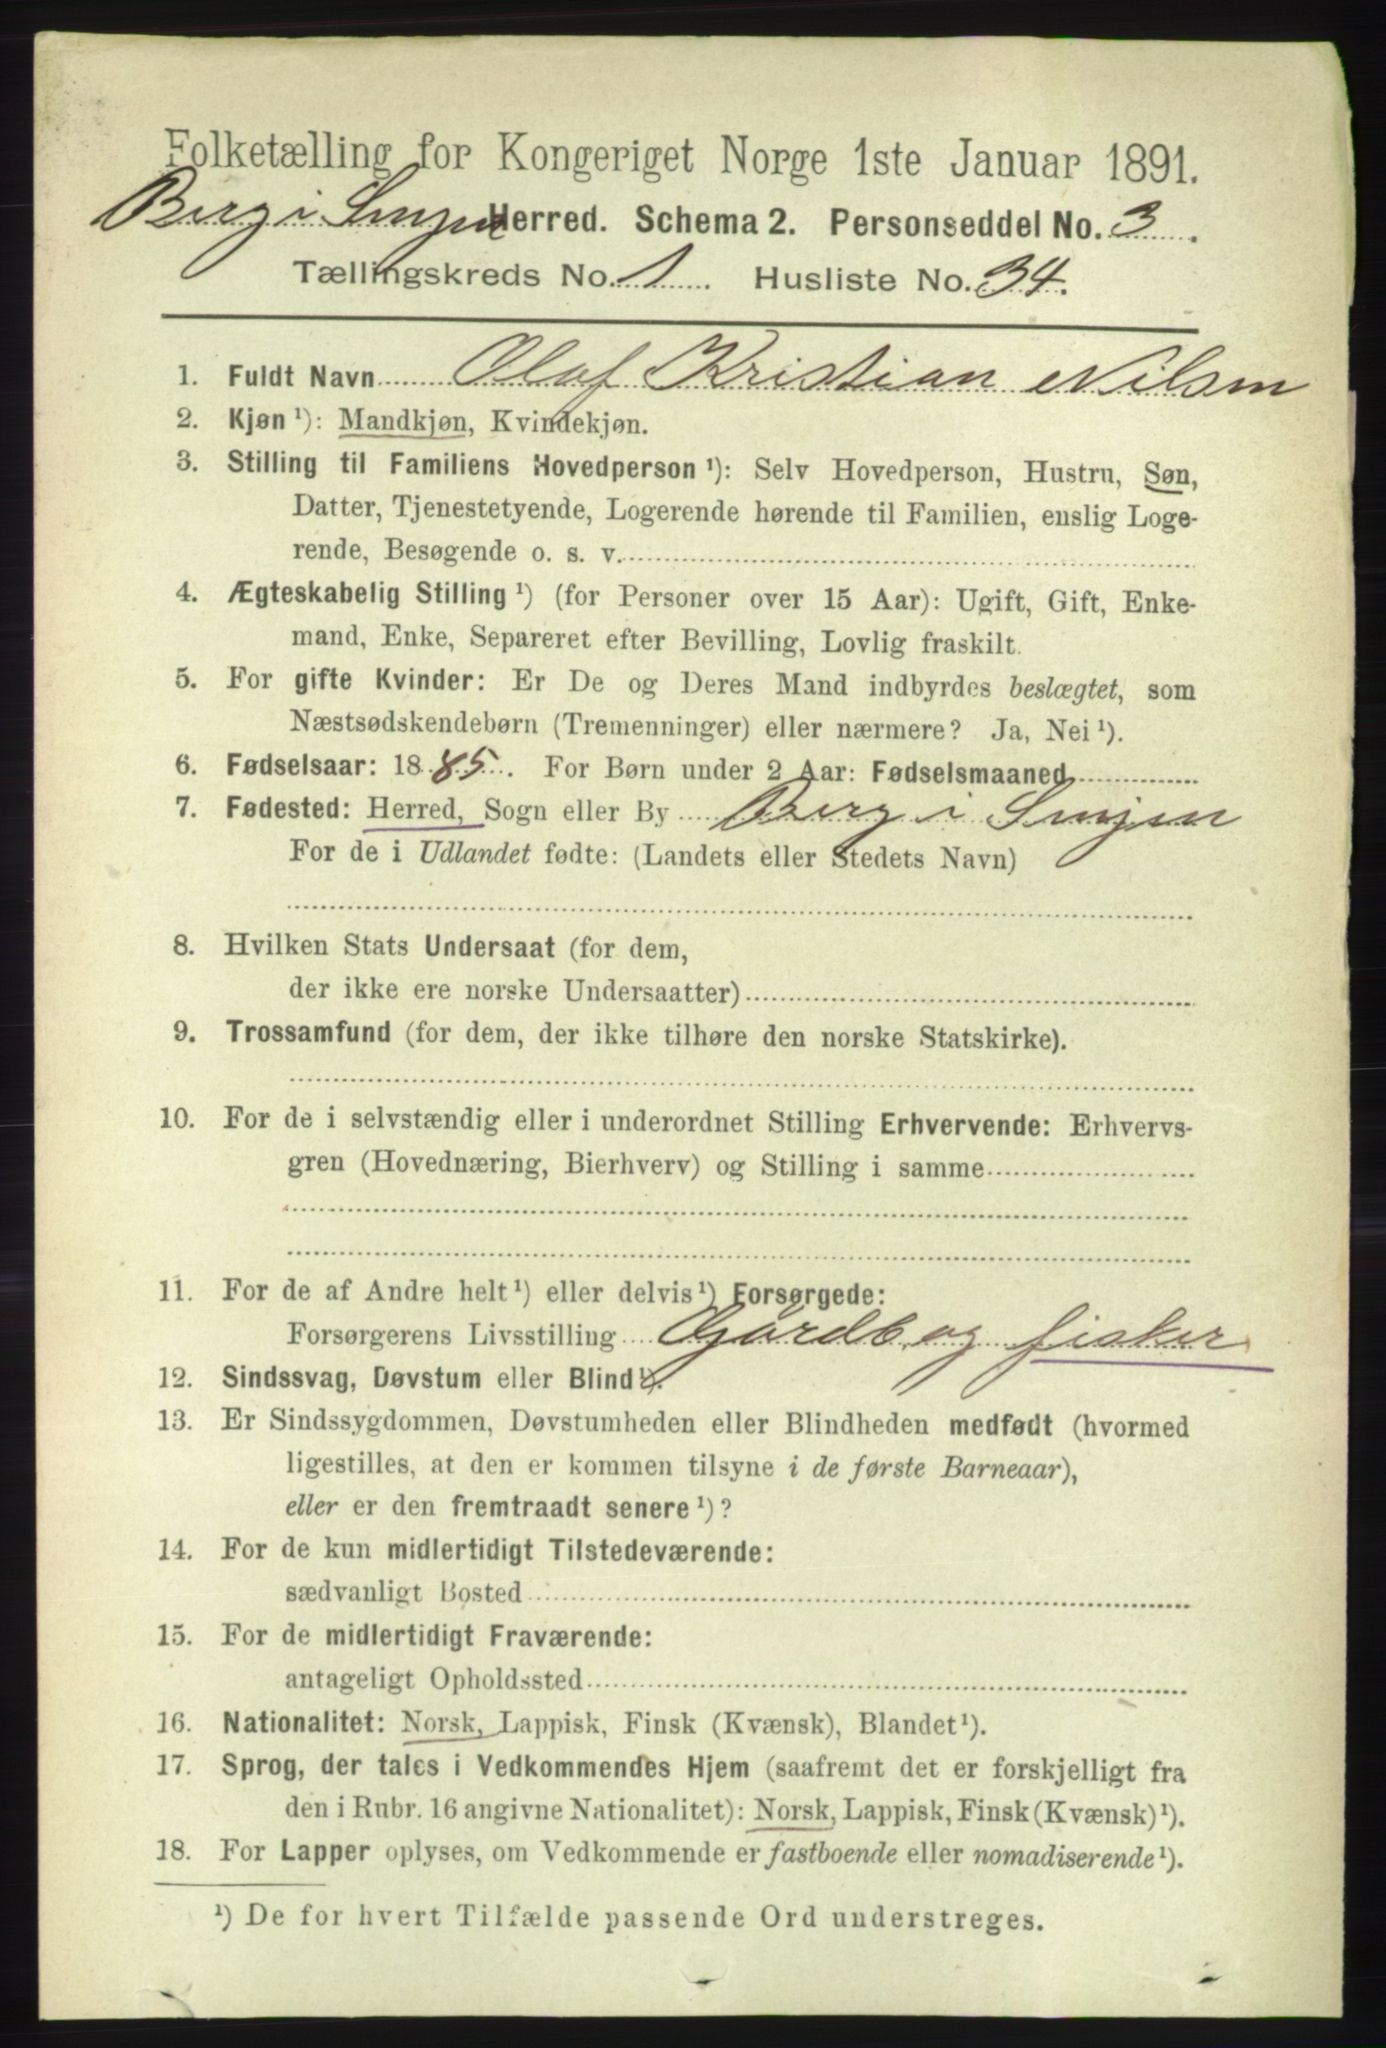 Folketælling for Kongeriget Norge 1ste Januar 1891.
Berg i Senjen Herred. Schema 2. Personseddel No. 3
Tællingskreds No. 1 Husliste No. 34.
1. Fuldt Navn Olaf Kristian Nilsen
2. Kjøn ¹): Mandkjøn, Kvindekjøn.
3. Stilling til Familiens Hovedperson ¹): Selv Hovedperson, Hustru, Søn,
Datter, Tjenestetyende, Logerende hørende til Familien, enslig Loge-
rende, Besøgende o. s. v.
4. Ægteskabelig Stilling ¹) (for Personer over 15 Aar): Ugift, Gift, Enke-
mand, Enke, Separeret efter Bevilling, Lovlig fraskilt.
5. For gifte Kvinder: Er De og Deres Mand indbyrdes beslægtet, som
Næstsødskendebørn (Tremenninger) eller nærmere? Ja, Nei ¹).
6. Fødselsaar: 1885. For Børn under 2 Aar: Fødselsmaaned
7. Fødested: Herred, Sogn eller By Berg i Senjen
For de i Udlandet fødte: (Landets eller Stedets Navn)
8. Hvilken Stats Undersaat (for dem,
der ikke ere norske Undersaatter)
9. Trossamfund (for dem, der ikke tilhøre den norske Statskirke).
10. For de i selvstændig eller i underordnet Stilling Erhvervende: Erhvervs-
gren (Hovednæring, Bierhverv) og Stilling i samme
11. For de af Andre helt ¹) eller delvis ¹) Forsørgede:
Forsørgerens Livsstilling Gårdb. og fisker
12. Sindssvag, Døvstum eller Blind ¹).
13. Er Sindssygdommen, Døvstumheden eller Blindheden medfødt (hvormed
ligestilles, at den er kommen tilsyne i de første Barneaar),
eller er den fremtraadt senere ¹)?
14. For de kun midlertidigt Tilstedeværende:
sædvanligt Bosted
15. For de midlertidigt Fraværende:
antageligt Opholdssted
16. Nationalitet: Norsk, Lappisk, Finsk (Kvænsk), Blandet ¹).
17. Sprog, der tales i Vedkommendes Hjem (saafremt det er forskjelligt fra
den i Rubr. 16 angivne Nationalitet): Norsk, Lappisk, Finsk (Kvænsk) ¹).
18. For Lapper oplyses, om Vedkommende er fastboende eller nomadiserende ¹).
¹) De for hvert Tilfælde passende Ord understreges.